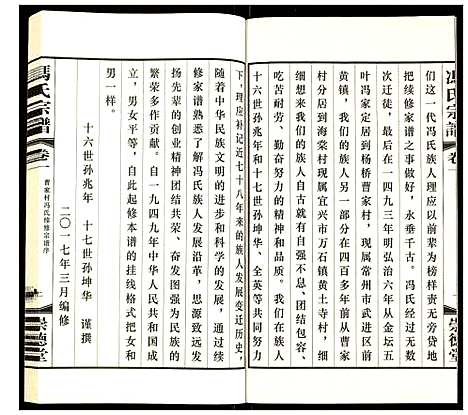 馮氏宗譜
卷一
们这一代冯氏族人理应以前辈为榜样，
把续修家谱之事代代做好，永垂千古。冯氏经过无数
次迁徒，最后在一四九三年明弘治六年从金坛五
叶冯家定居到杨桥曹家村，现属常州市武进区前
黄镇，我们的族人另一部分在四百多年前从曹家
村分居到海棠村现属宜兴市万石镇黄土寺村，细
细想来我们的族人自古就有自强不息、团结包容、
吃苦耐劳、勤奋努力的精神和品质。我们在族人
十六世孙少华、兆年，十七世孙坤华、全英等共同努力
下，理应补记近七十八年来的族人发展变迁历史，
随着中华民族文明的进步和科学发展，通过续
修家谱熟悉了解冯氏族人发展沿革，思源致远发
扬先辈的创业精神团结共荣、奋发图强为民族的
繁荣多作贡献。自一九四九年中华人民共和国成
立，男女平等，自此起修本谱的挂线格式把女和
男一样。
十六世孙兆年 十七世孙坤华 谨撰
二〇一七年三月编修
馮氏宗譜
卷一
曹家村冯氏续修宗谱序
崇德堂
崇德堂